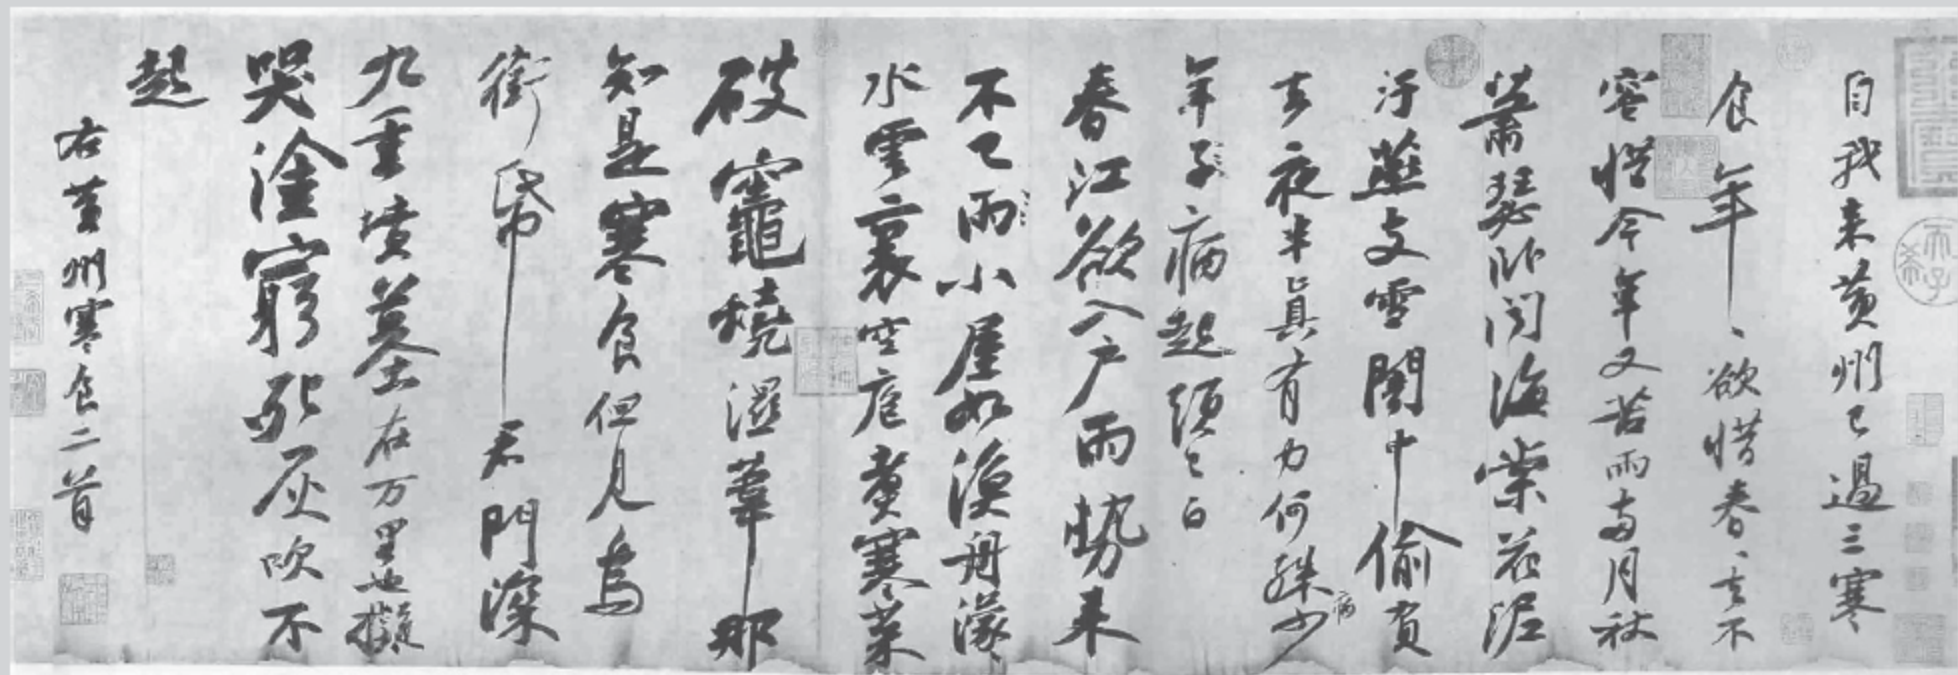 自我来黄州已過三寒
食年ヽ欲惜春ヽ去不
容惜今年又苦雨兩月秋
蕭瑟卧聞海棠花泥
汙燕支雪闇中偷負
去夜半真有力何殊少
病
年子病起頭已白
春江欲入户雨勢来
不已雨小屋如漁舟濛
水雲裏空庖煮寒菜
破竈燒濕葦那
知是寒食但見烏
銜帋君門深
九重墳墓在万里也擬
哭塗窮死灰吹不
起
右黄州寒食二首